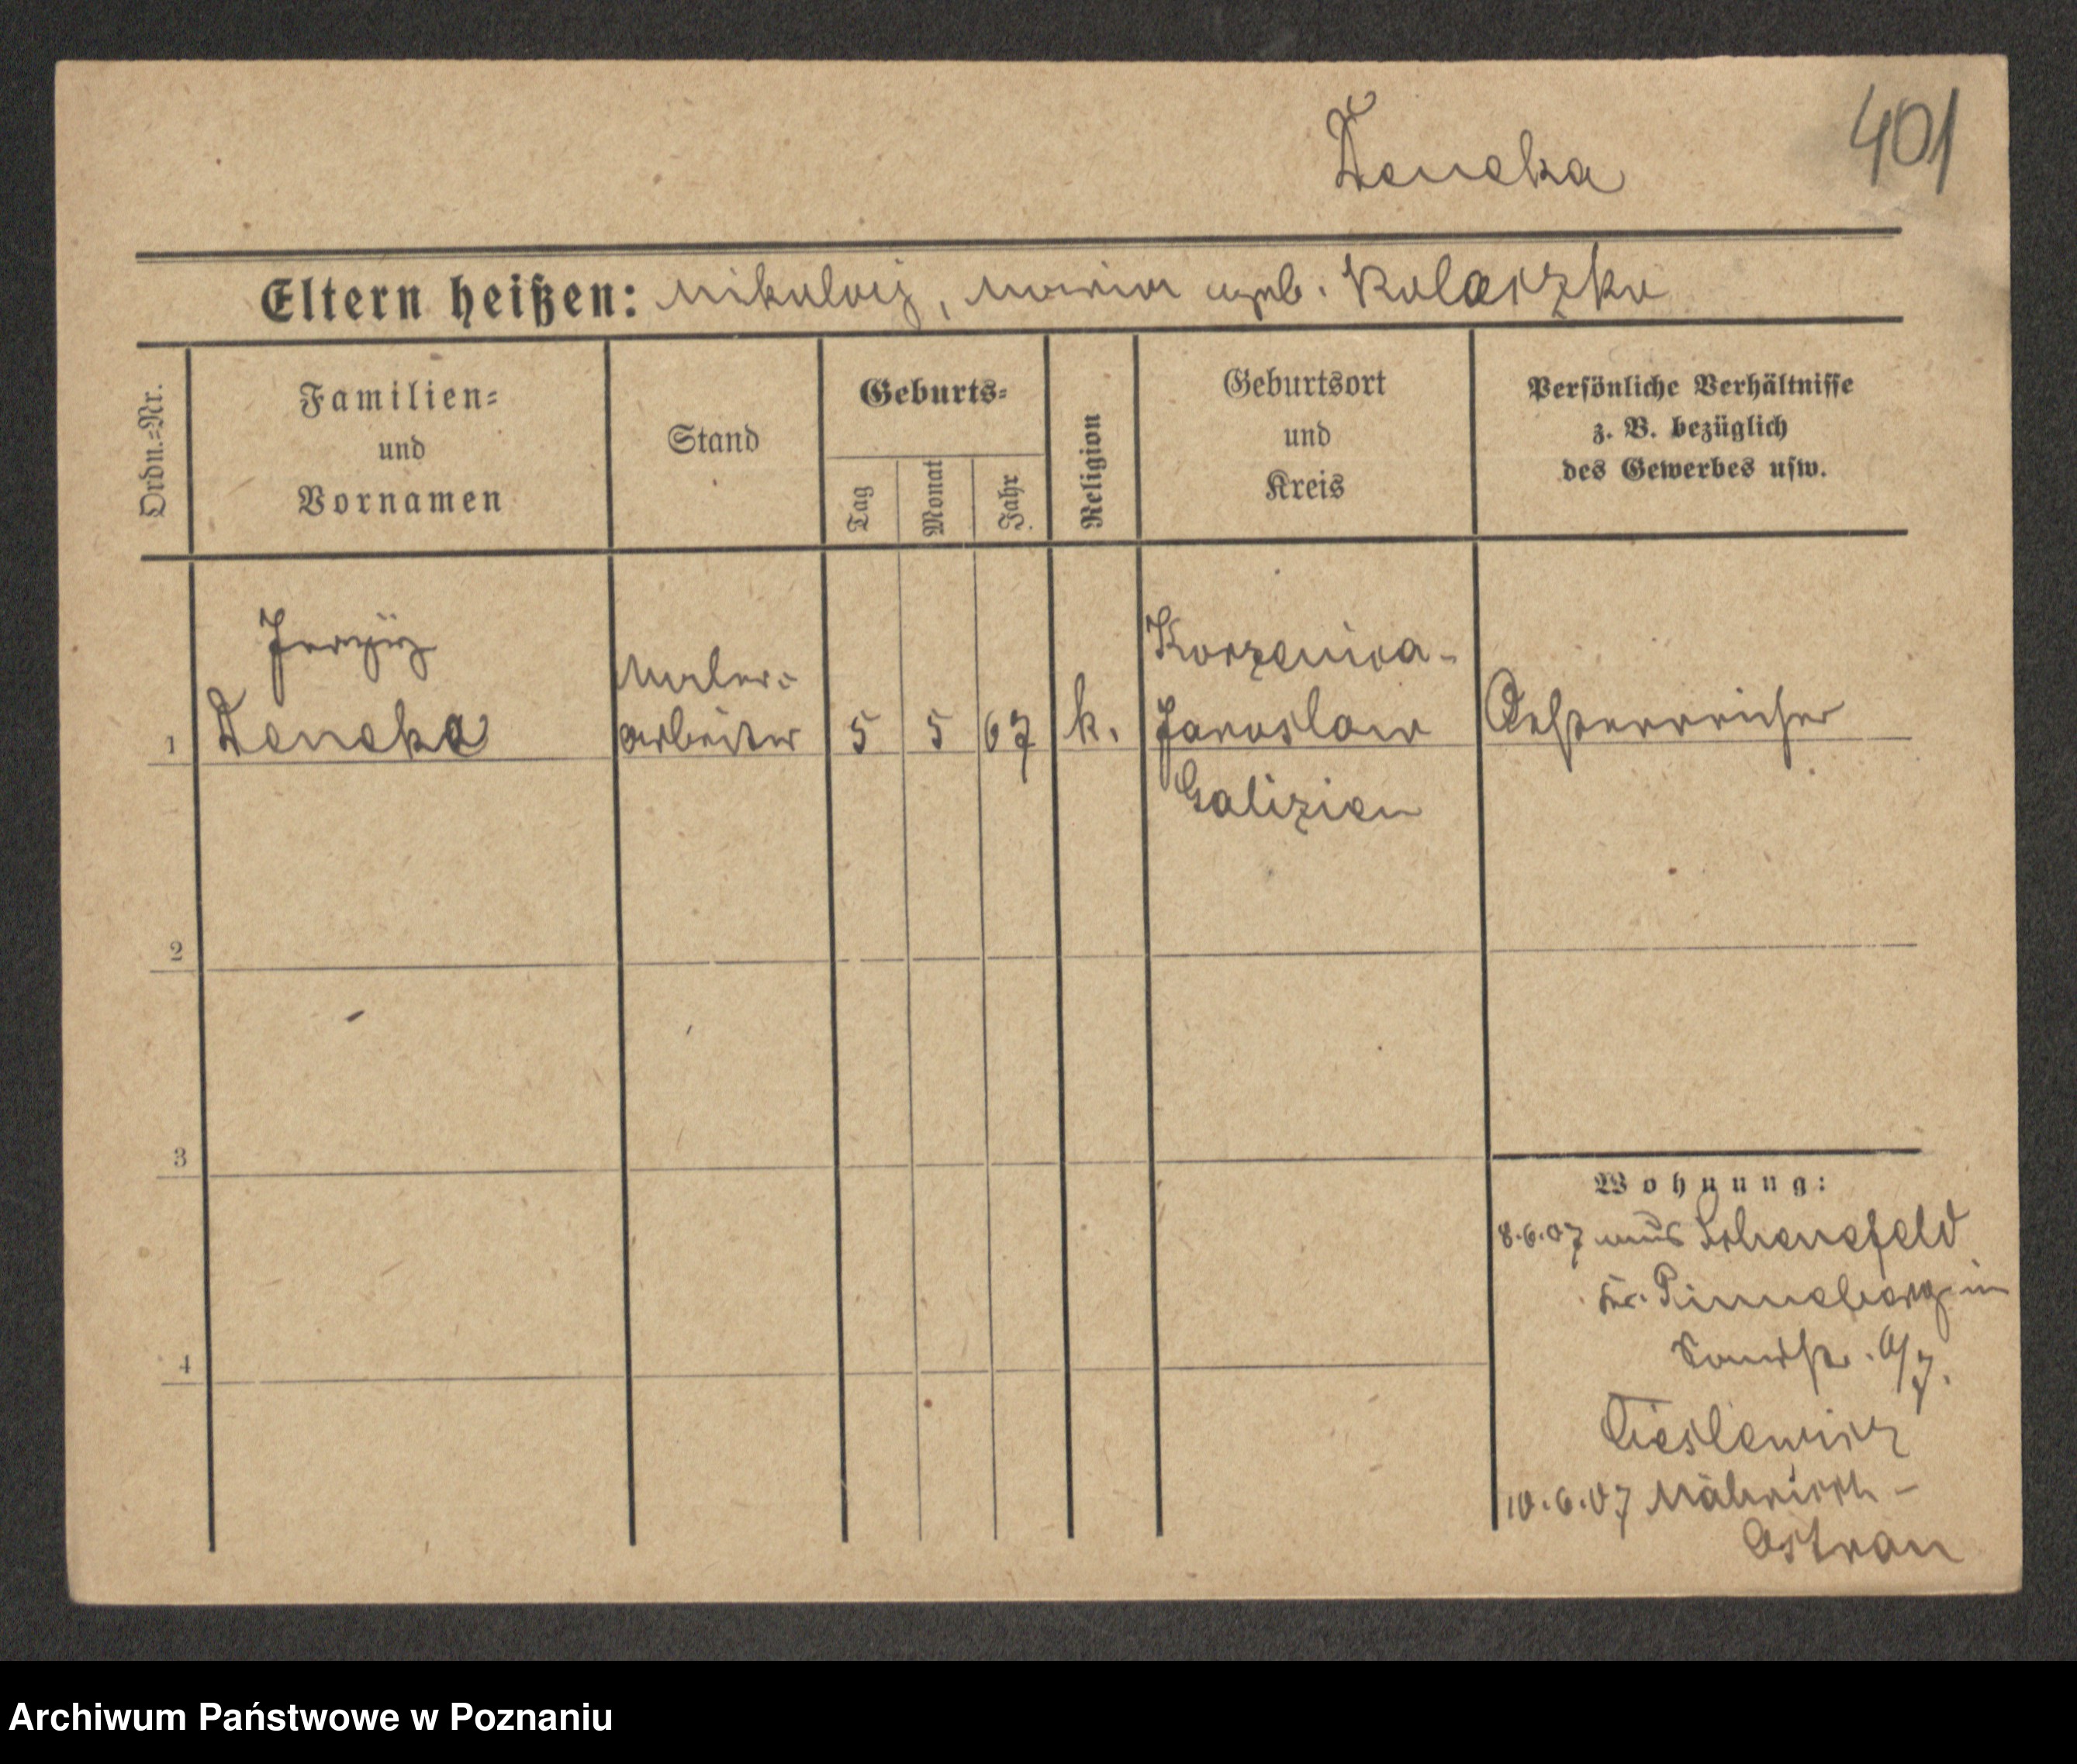 401
Deneka
Eltern heißen: Mikolaij, Maria geb. Kolaczko
Ordn.=Nr.
Familien=
und
Vornamen
Stand
Geburts=
Tag
Monat
Jahr
Religion
Geburtsort
und
Kreis
Persönliche Verhältnisse
z. B. bezüglich
des Gewerbes usw.
1
Deneka
Maler=
arbeiter
5
5
67
k.
Korzenica-
Jaroslaw
Galizien
Oesterreicher
2
3
4
Wohnung:
8.6.07 aus Schenefeld
Kr. Pinneberg in
Cieslewicz
10.6.07 Mährisch-
Ostrau
Archiwum Państwowe w Poznaniu